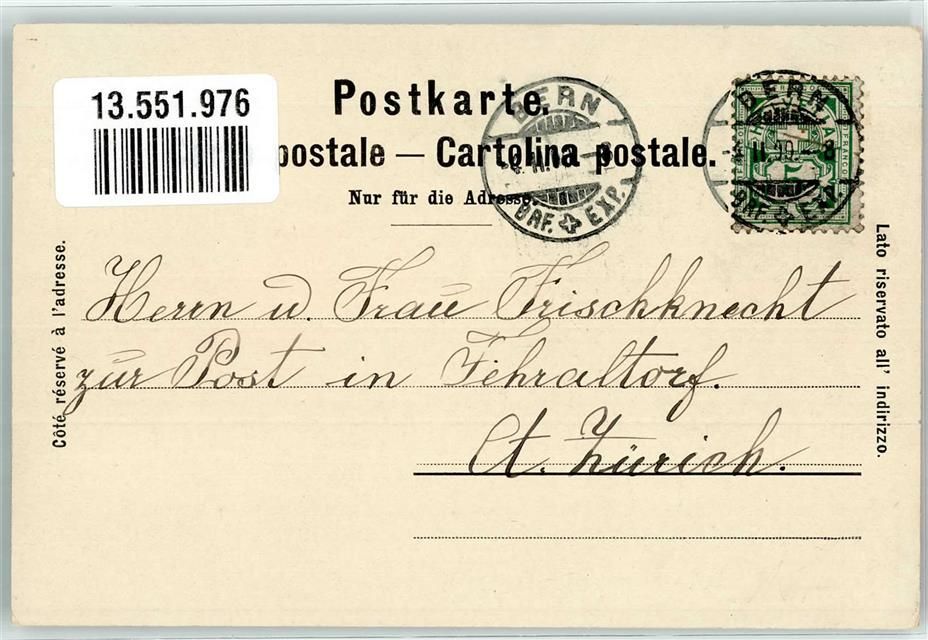 13.551.976
Postkarte.
postale — Cartolina postale.
Nur für die Adresse.
BERN
BRF. EXP.
BERN
Côté réservé à l'adresse.
Lato riservato all' indirizzo.
Herrn u. Frau Frischknecht
zur Post in Fehraltorf.
Ct. Zürich.